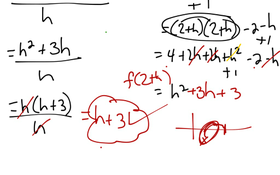 h
= h² + 3h
h
= h(h+3)
h
= h+3
+1
= (2+h)(2+h) -2-h
+1
= 4+2h+2h+h² -2-h
+1
f(2+h)
= h² +3h + 3